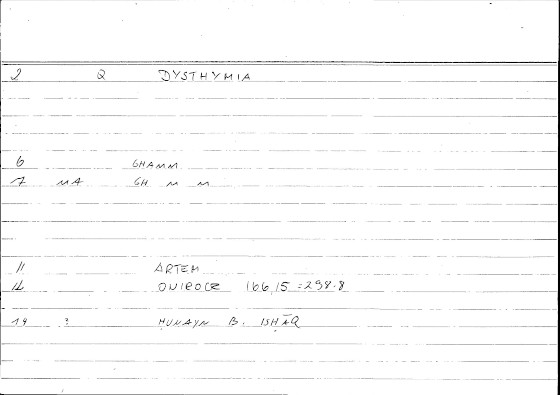 2 Q DYSTHYMIA
6 GHAMM
7 MA GH M M
11 ARTEM
12 ONIROCR 166,15 = 298.8
14 ? ḤUNAYN B. ISḤĀQ